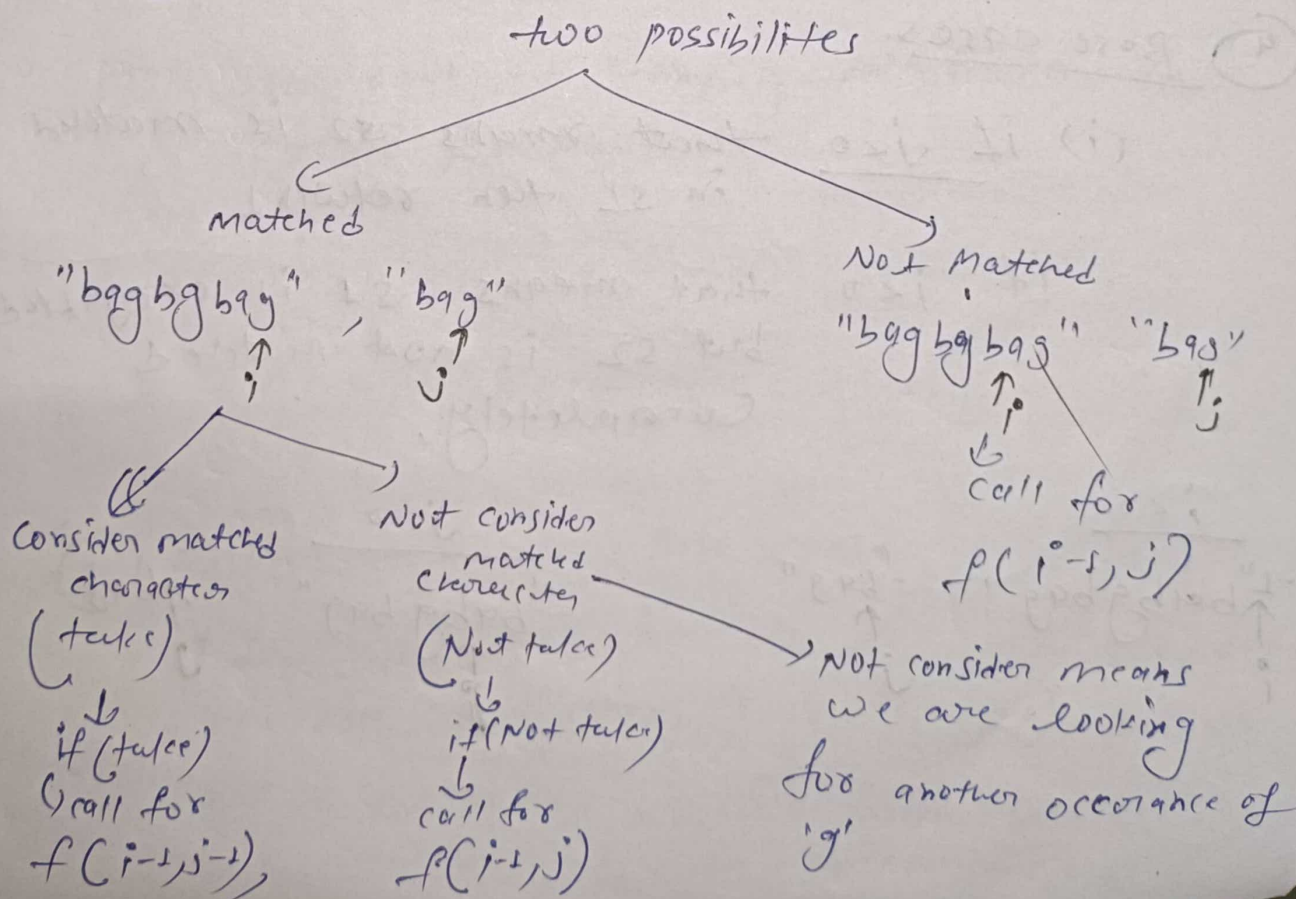 two possibilites
matched
"bagbgbag" , "bag"
i j
Consider matched
character
(take)
if (take)
call for
f(i-1, j-1),
Not consider
matched
character
(Not take)
if (Not take)
call for
f(i-1, j)
Not Matched
"bagbgbag" "bag"
i j
call for
f(i-1, j)
Not consider means
we are looking
for another occorance of
'g'